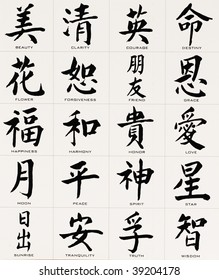 美 清 英 命
BEAUTY CLARITY COURAGE DESTINY
花 恕 朋友 恩
FLOWER FORGIVENESS FRIEND GRACE
福 和 貴 愛
HAPPINESS HARMONY HONOR LOVE
月 平 神 星
MOON PEACE SPIRIT STAR
日出 安 孚 智
SUNRISE TRANQUILITY TRUTH WISDOM
shutterstock.com · 39204178